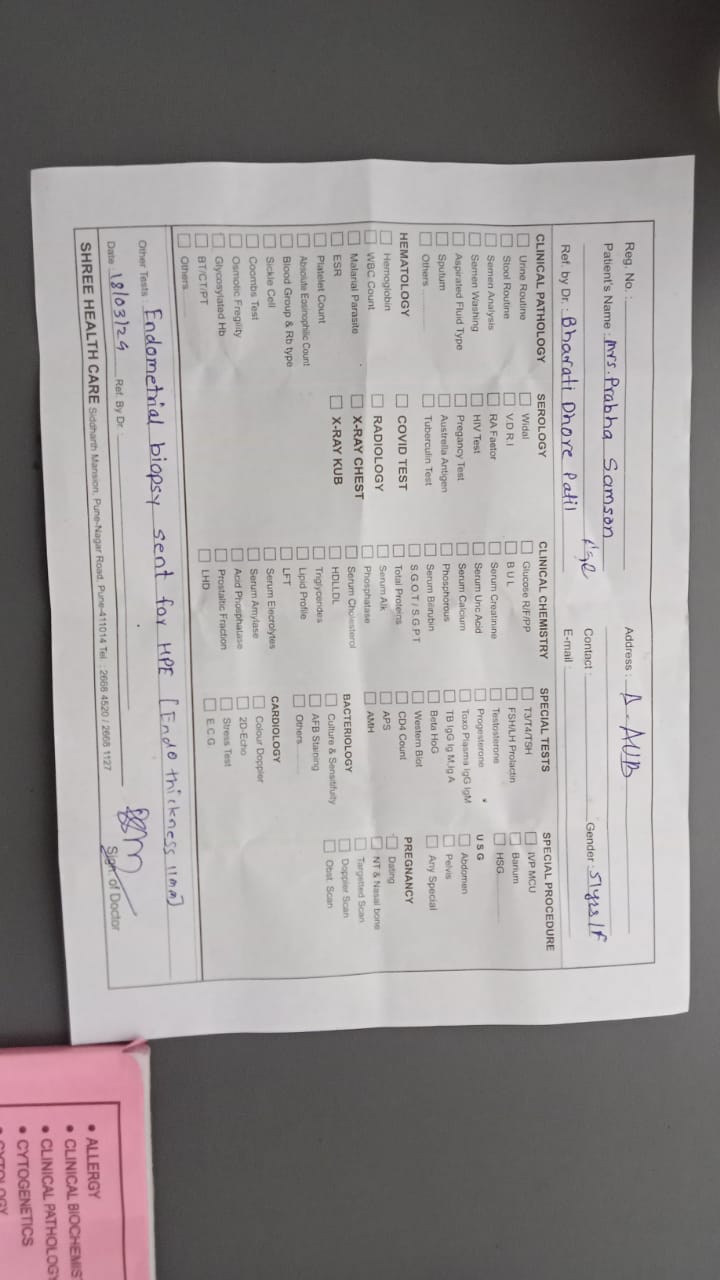 Reg. No. :
Address : Δ - AUB
Patient's Name : Mrs. Prabha Samson
Age
Contact :
Gender : 51yrs/F
Ref. by Dr. : Bharati Dhore Patil
E-mail :
CLINICAL PATHOLOGY
Urine Routine
Stool Routine
Semen Analysis
Semen Washing
Aspirated Fluid Type
Sputum
Others
HEMATOLOGY
Hemoglobin
WBC Count
Malarial Parasite
ESR
Platelet Count
Absolute Eosinophilic Count
Blood Group & Rb type
Sickle Cell
Coombs Test
Osmotic Fregility
Glycosylated Hb
BT/CT/PT
Others
SEROLOGY
Widal
V.D.R.I
RA Faetor
HIV Test
Pregancy Test
Australia Antigen
Tuberculin Test
COVID TEST
RADIOLOGY
X-RAY CHEST
X-RAY KUB
CLINICAL CHEMISTRY
Glucose R/F/PP
B U L
Serum Creatinine
Serum Uric Acid
Serum Calcium
Phosphorous
Serum Bilirubin
S.G.O.T / S.G.P.T
Total Proteins
Serum Alk
Phosphatase
Serum Cholesterol
HDL/LDL
Triglycerides
Lipid Profile
LFT
Serum Elecrolytes
Serum Amylase
Acid Phosphatase
Prostatic Fraction
LHD
SPECIAL TESTS
T3/T4/TSH
FSH/LH Prolactin
Testosterone
Progesterone
Toxo Plasma IgG IgM
TB IgG Ig M.Ig A
Beta HoG
Western Blot
CD4 Count
APS
AMH
BACTERIOLOGY
Culture & Sensitifuity
AFB Staining
Others
CARDIOLOGY
Colour Doppler
2D-Echo
Stress Test
E C G
SPECIAL PROCEDURE
IVP MCU
Barium
HSG
U S G
Abdomen
Pelvis
Any Special
PREGNANCY
Dating
NT & Nasal bone
Targetted Scan
Doppler Scan
Obst. Scan
Other Tests : Endometrial biopsy sent for HPE [Endo thickness 11mm]
Date 18/03/24 Ref. By Dr.
Sign of Doctor
SHREE HEALTH CARE Siddharth Mansion, Pune-Nagar Road, Pune-411014 Tel. : 2668 4520 / 2668 1127
• ALLERGY
• CLINICAL BIOCHEMIS
• CLINICAL PATHOLOGY
• CYTOGENETICS
• CYTOLOGY